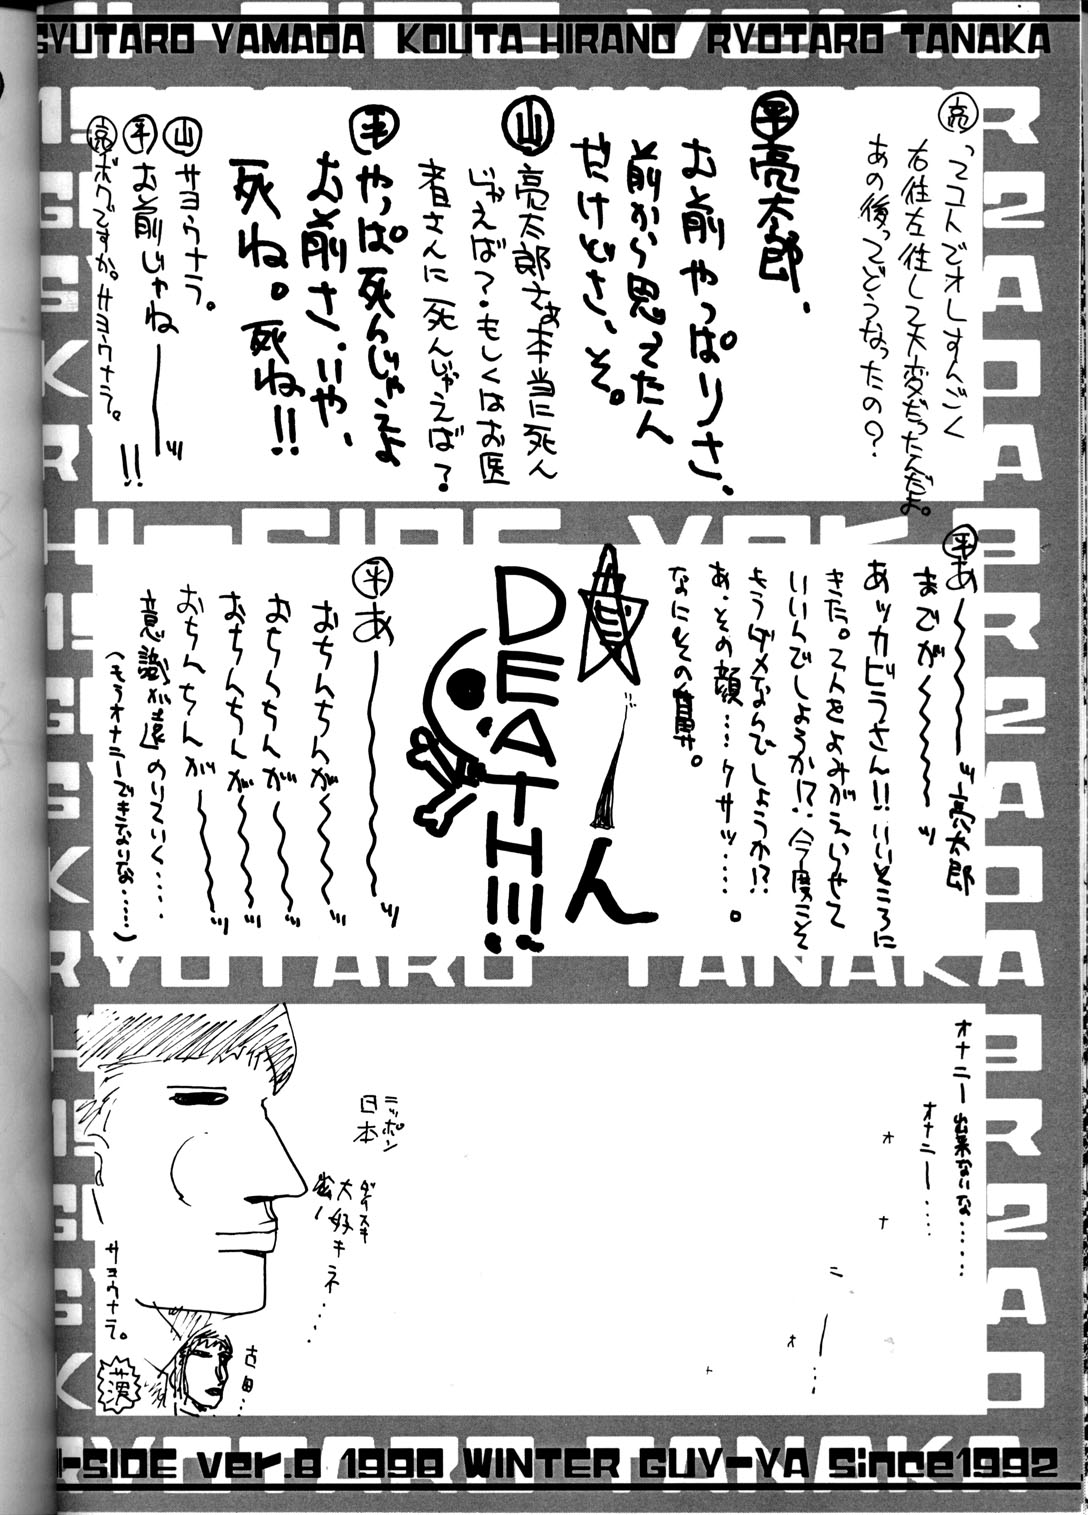 GYUTARO YAMADA KOUTA HIRANO RYOTARO TANAKA
亮 ってコトでオレすんごく
右往左往して大変だったんだよ。
あの後ってどうなったの?
平 亮太郎、
お前やっぱりさ、
前から思ってたん
だけどさ、そ。
山 亮太郎さぁ本当に死ん
じゃえば?もしくはお医
者さんに死んじゃえば?
平 やっぱ死んじゃえよ
お前さ、いや、
死ね。死ね!!
山 サヨウナラ。
平 お前じゃねーッ!!
亮 ボクですか。サヨウナラ。
平 あ〜〜〜ーッ亮太郎
までが〜〜〜ーッ
あッカビラさん!!いいところに
きた。てんをよみがえらせて
いいんでしょうか!?今度こそ
もうダメなんでしょうか!?
あ、その顔…クサッ…。
なにその
ん
DEATH!!!
平 あ〜〜〜ッ
おちんちんが〜〜〜ッ
おちんちんが〜〜〜ッ
おちんちんが〜〜〜ッ
おちんちんが〜〜〜ッ
意識が遠のいていく……
(もうオナニーできないな……)
オナニー出来ないな……
オナニー……
オ
ナ
ニ
ー…
オ
ナ
ニッポン
日本
ダイスキ
大好キネ……
サヨウナラ。
古田…
HI-SIDE ver.8 1998 WINTER GUY-YA Since1992